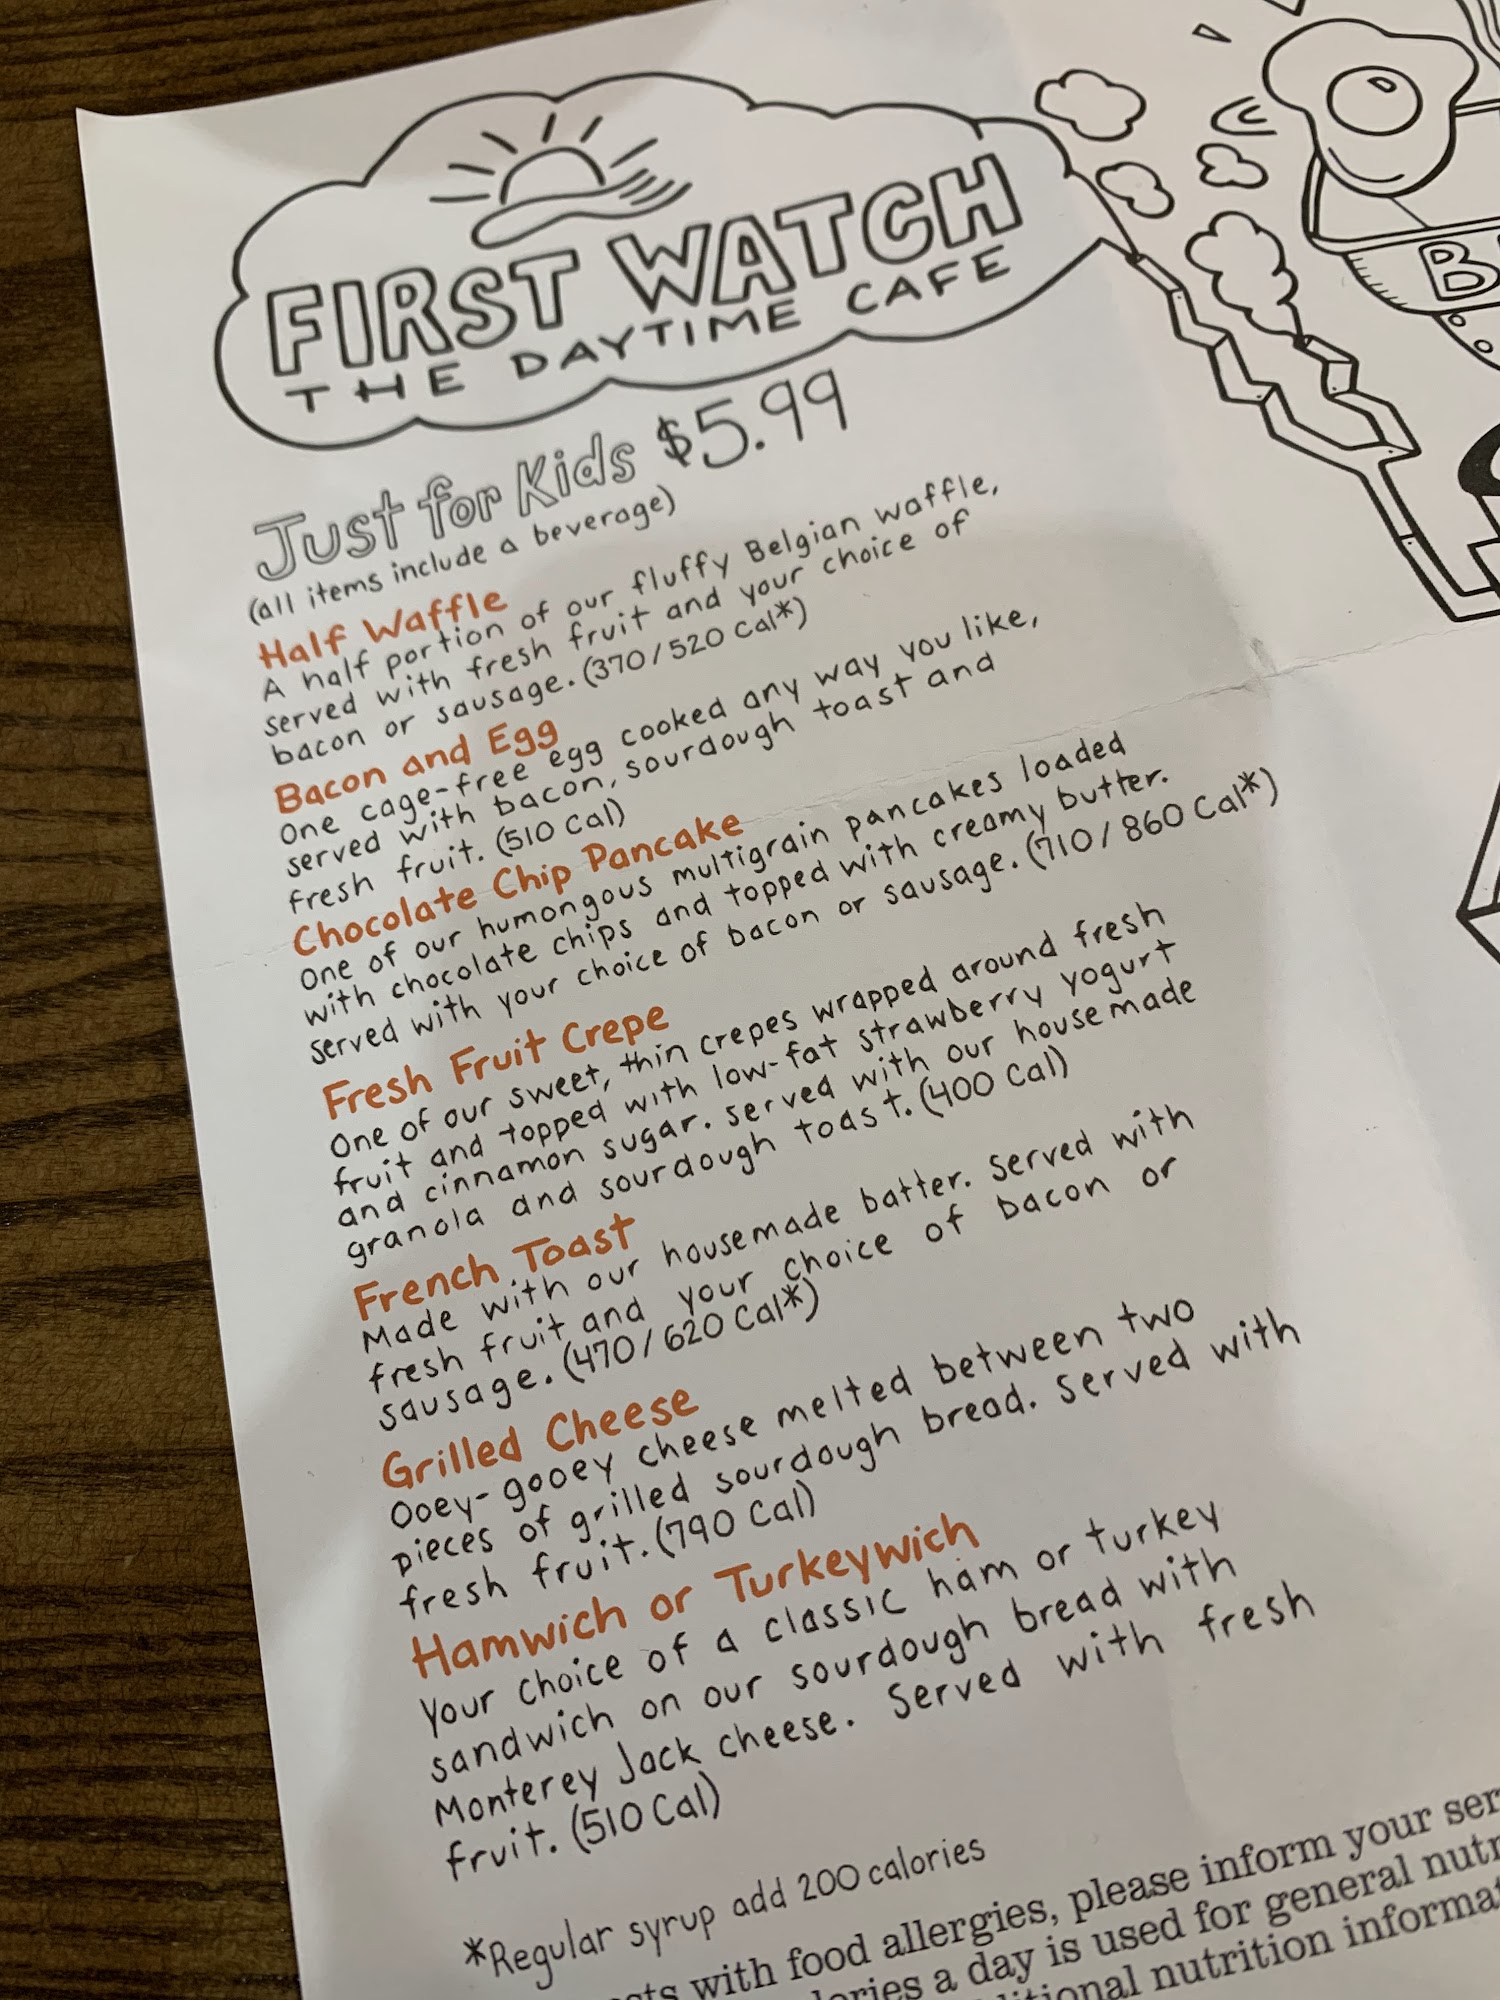 FIRST WATCH
THE DAYTIME CAFE
Just for Kids $5.99
(all items include a beverage)
Half Waffle
A half portion of our fluffy Belgian waffle,
served with fresh fruit and your choice of
bacon or sausage. (370/520 Cal*)
Bacon and Egg
One cage-free egg cooked any way you like,
served with bacon, sourdough toast and
fresh fruit. (510 Cal)
Chocolate Chip Pancake
One of our humongous multigrain pancakes loaded
with chocolate chips and topped with creamy butter.
Served with your choice of bacon or sausage. (710/860 Cal*)
Fresh Fruit Crepe
One of our sweet, thin crepes wrapped around fresh
fruit and topped with low-fat strawberry yogurt
and cinnamon sugar. Served with our housemade
granola and sourdough toast. (400 Cal)
French Toast
Made with our housemade batter. Served with
fresh fruit and your choice of bacon or
sausage. (470/620 Cal*)
Grilled Cheese
Ooey-gooey cheese melted between two
pieces of grilled sourdough bread. Served with
fresh fruit. (790 Cal)
Hamwich or Turkeywich
Your choice of a classic ham or turkey
sandwich on our sourdough bread with
Monterey Jack cheese. Served with fresh
fruit. (510 Cal)
*Regular syrup add 200 calories
with food allergies, please inform your
a day is used for general
nutrition